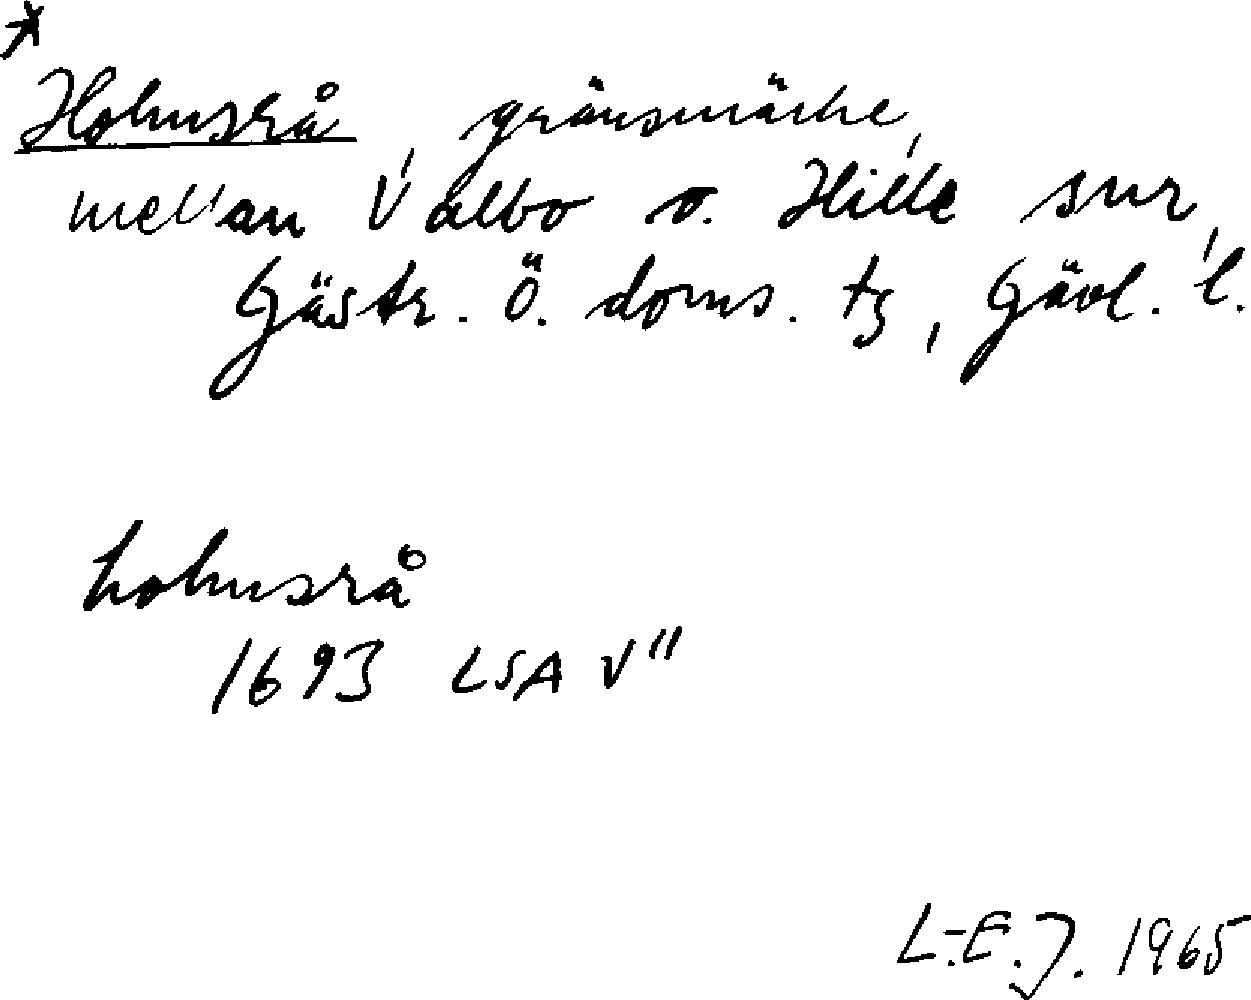 *
Holmsrå, gränsmärke,
mellan Valbo o. Hille snr,
Gästr. Ö. doms. tg, Gävl. l.
holmsrå
1693 LSA V"
L.-E. J. 1965